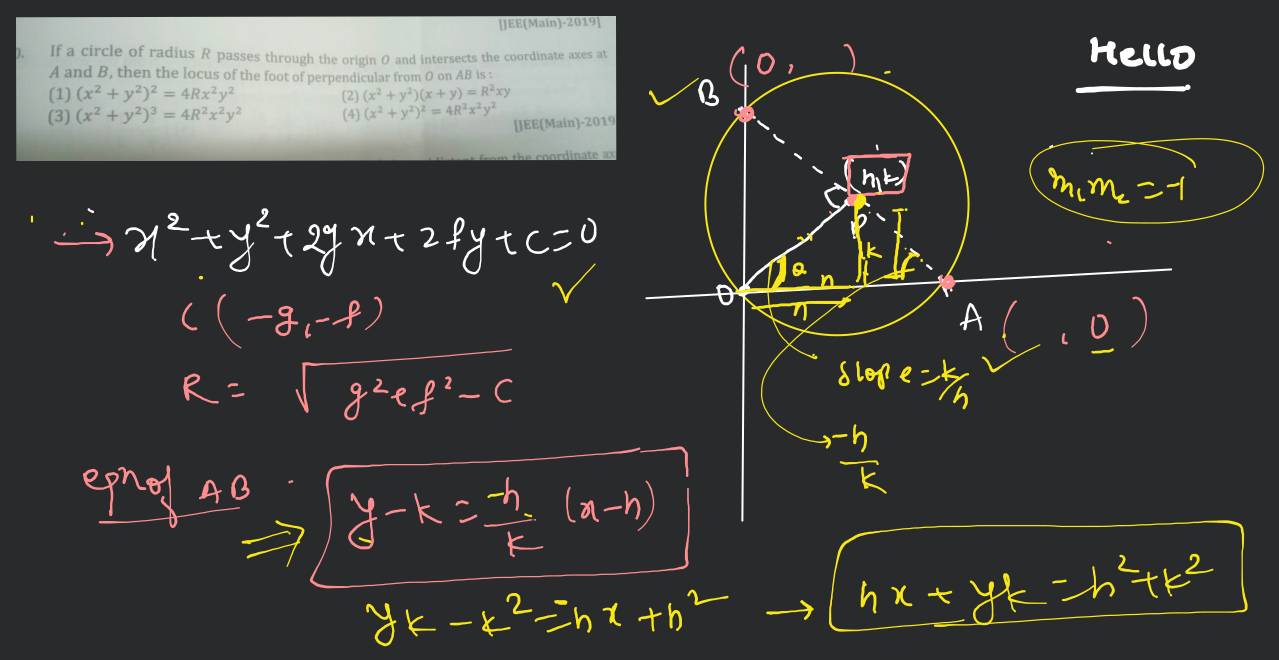 [JEE(Main)-2019]
If a circle of radius R passes through the origin O and intersects the coordinate axes at
A and B, then the locus of the foot of perpendicular from O on AB is :
(1) (x² + y²)² = 4Rx²y²
(2) (x² + y²)(x + y) = R²xy
(3) (x² + y²)³ = 4R²x²y²
(4) (x² + y²)² = 4R²x²y²
[JEE(Main)-2019
from the coordinate ax
Hello
(0, )
B
(h,k)
m₁m₂ = -1
P
k
θ
h
h
O
A ( , 0)
slope = k/h
-h/k
x² + y² + 2gx + 2fy + c = 0
C(-g, -f)
R = √g² + f² - C
eqn of AB
y - k = -h/k (x - h)
yk - k² = -hx + h²
hx + yk = h² + k²